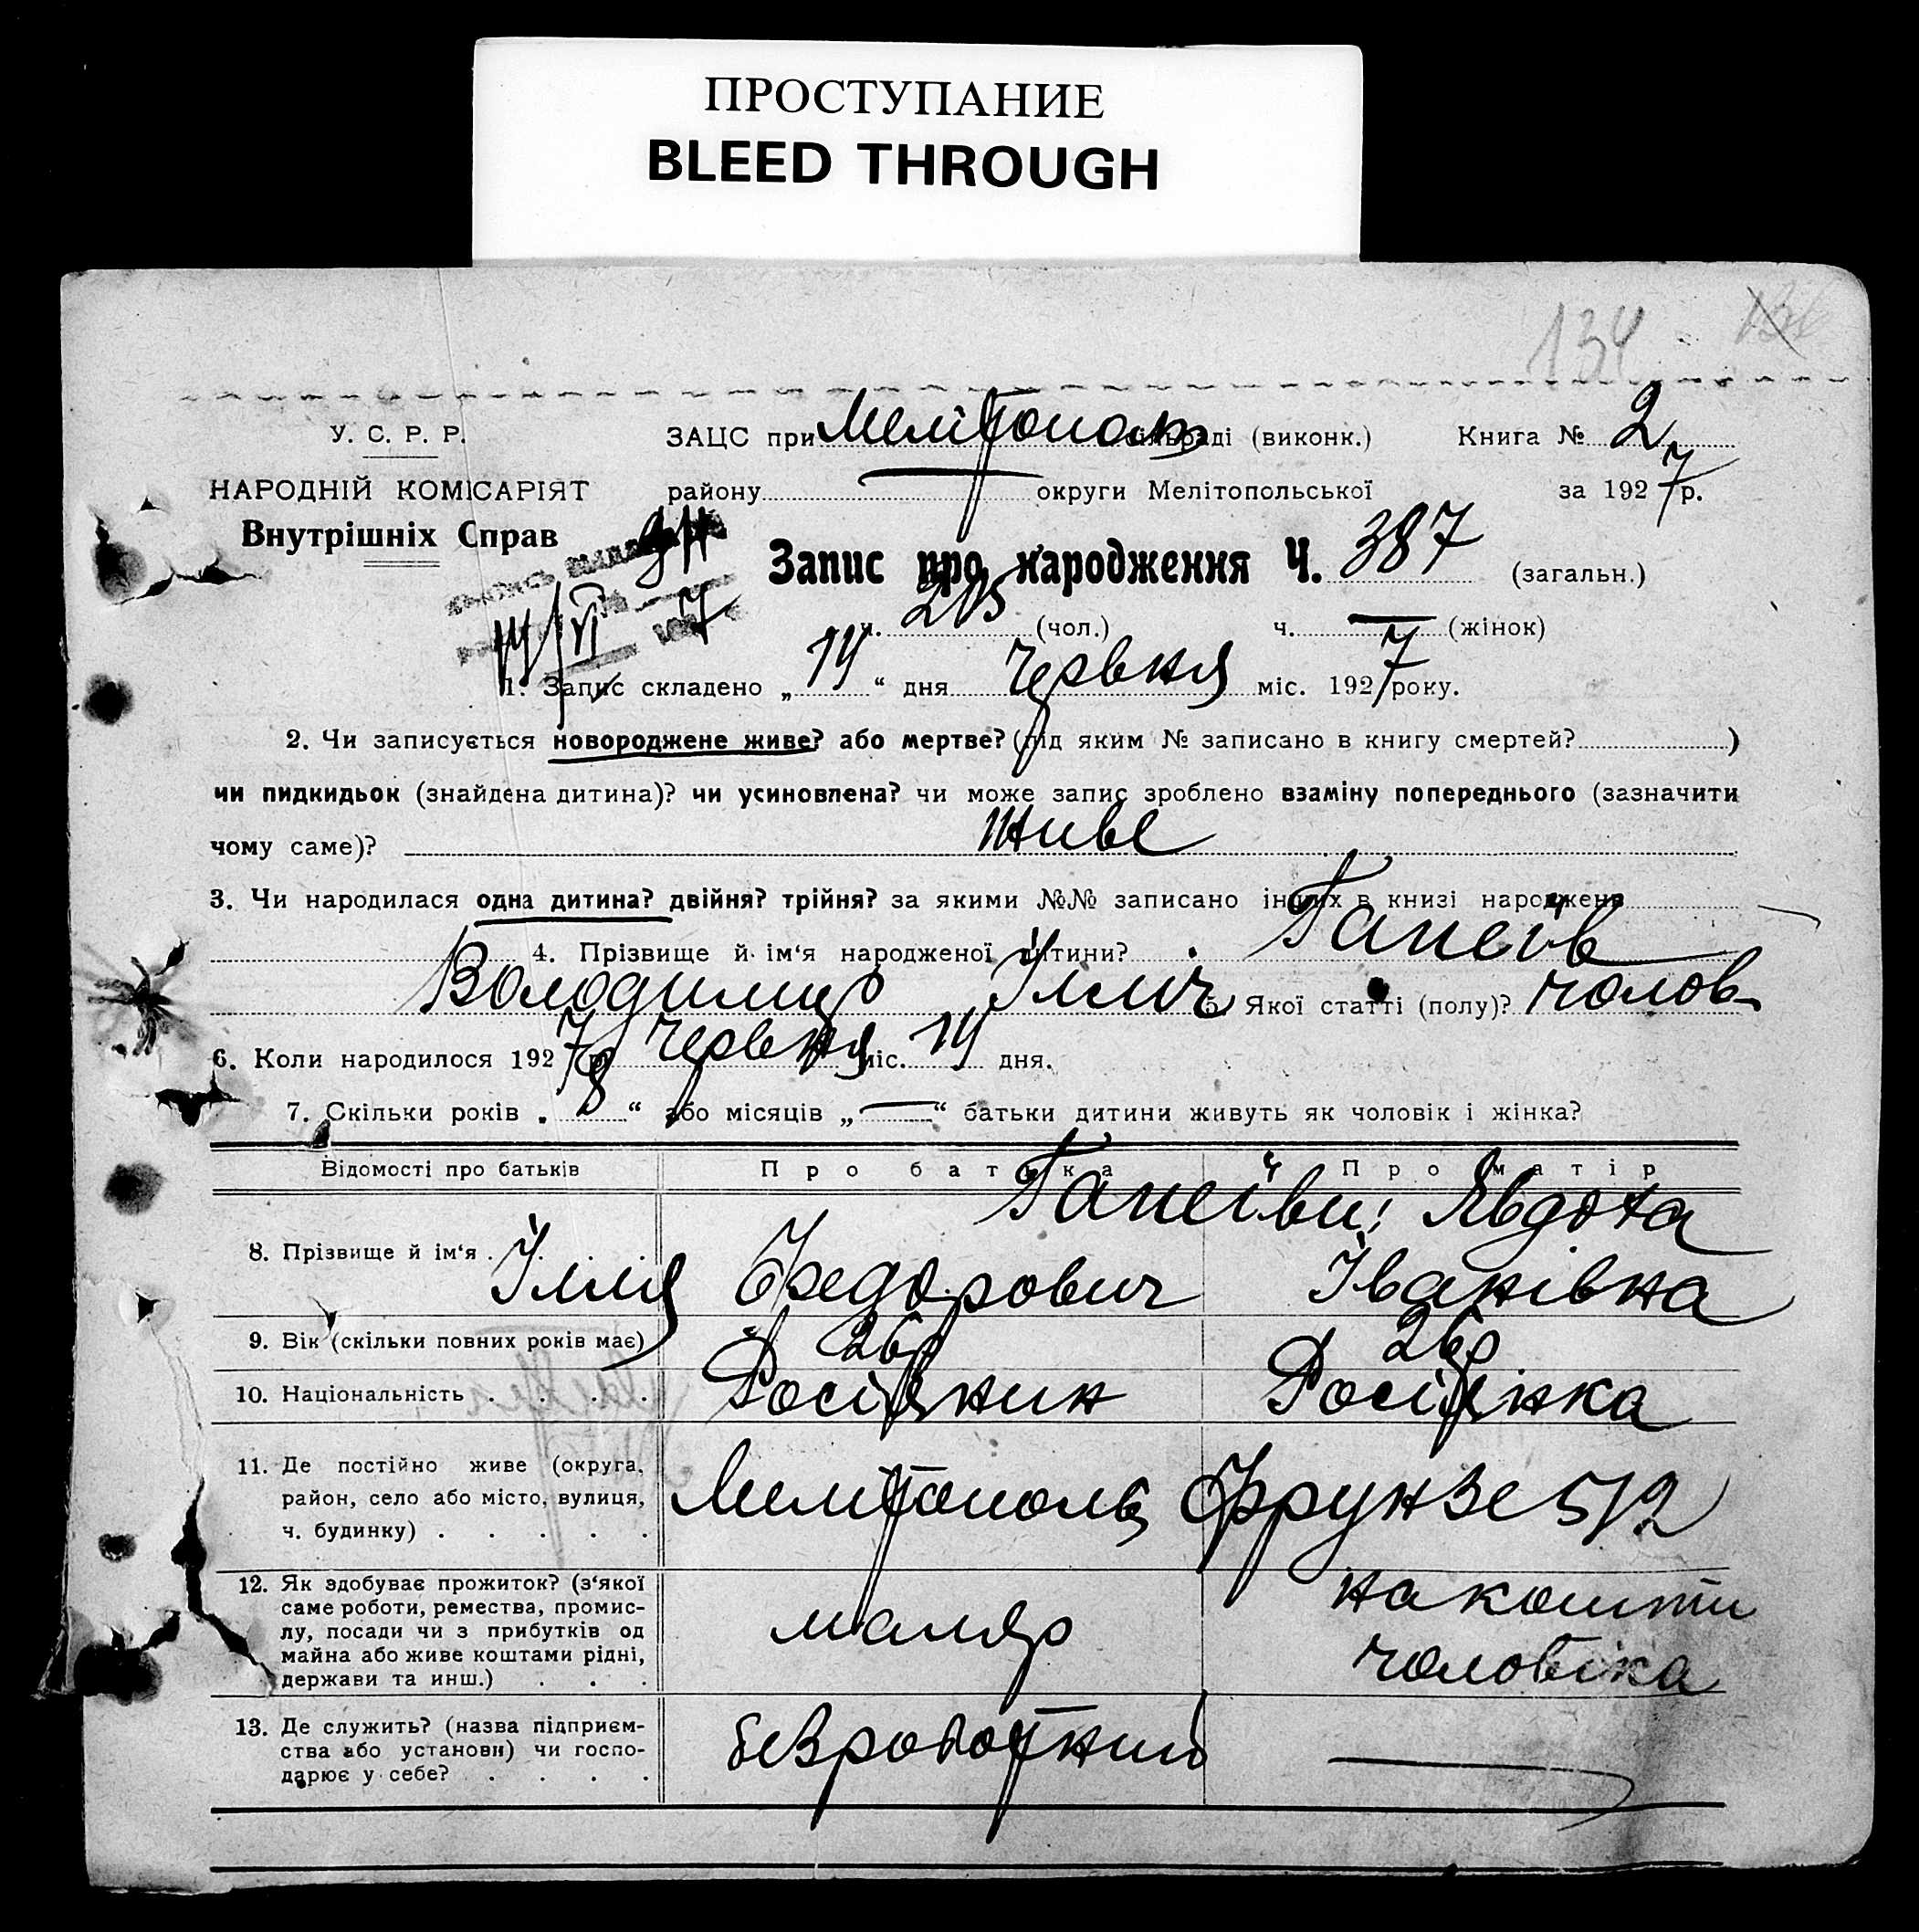 ПРОСТУПАНИЕ
BLEED THROUGH
134
У. С. Р. Р.
НАРОДНІЙ КОМІСАРІЯТ
Внутрішніх Справ
ЗАЦС при Мелітополь сільраді (виконк.) Книга № 2
району — округи Мелітопольської за 1927 р.
Запис про народження Ч. 387 (загальн.)
14/VI 7
ч. 205 (чол.) ч. — (жінок)
1. Запис складено „14“ дня червня міс. 1927 року.
2. Чи записується новороджене живе? або мертве? (під яким № записано в книгу смертей? )
чи пидкидьок (знайдена дитина)? чи усиновлена? чи може запис зроблено взаміну попереднього (зазначити
чому саме)? живе
3. Чи народилася одна дитина? двійня? трійня? за якими №№ записано інших в книзі народжень
4. Прізвище й ім‘я народженої дитини? Гапеїв
Володимир Ілліч 5. Якої статті (полу)? чолов
6. Коли народилося 1927 р. червня міс. 14 дня.
7. Скільки років „8“ або місяців „—“ батьки дитини живуть як чоловік і жінка?
Відомості про батьків Про батька Про матір
Гапеїви: Явдоха
8. Прізвище й ім‘я . Ілля Федорович Іванівна
9. Вік (скільки повних років має) 26 р 26 р
10. Національність . . . . Росіянин Росіянка
11. Де постійно живе (округа,
район, село або місто, вулиця, Мелітополь Фрунзе 5/2
ч. будинку) . . . . .
12. Як здобуває прожиток? (з‘якої
саме роботи, ремества, промис-
лу, посади чи з прибутків од
майна або живе коштами рідні,
держави та инш.) . . .
маляр на кошти
чоловіка
13. Де служить? (назва підприєм-
ства або установи) чи госпо-
дарює у себе? . . . .
безработний —